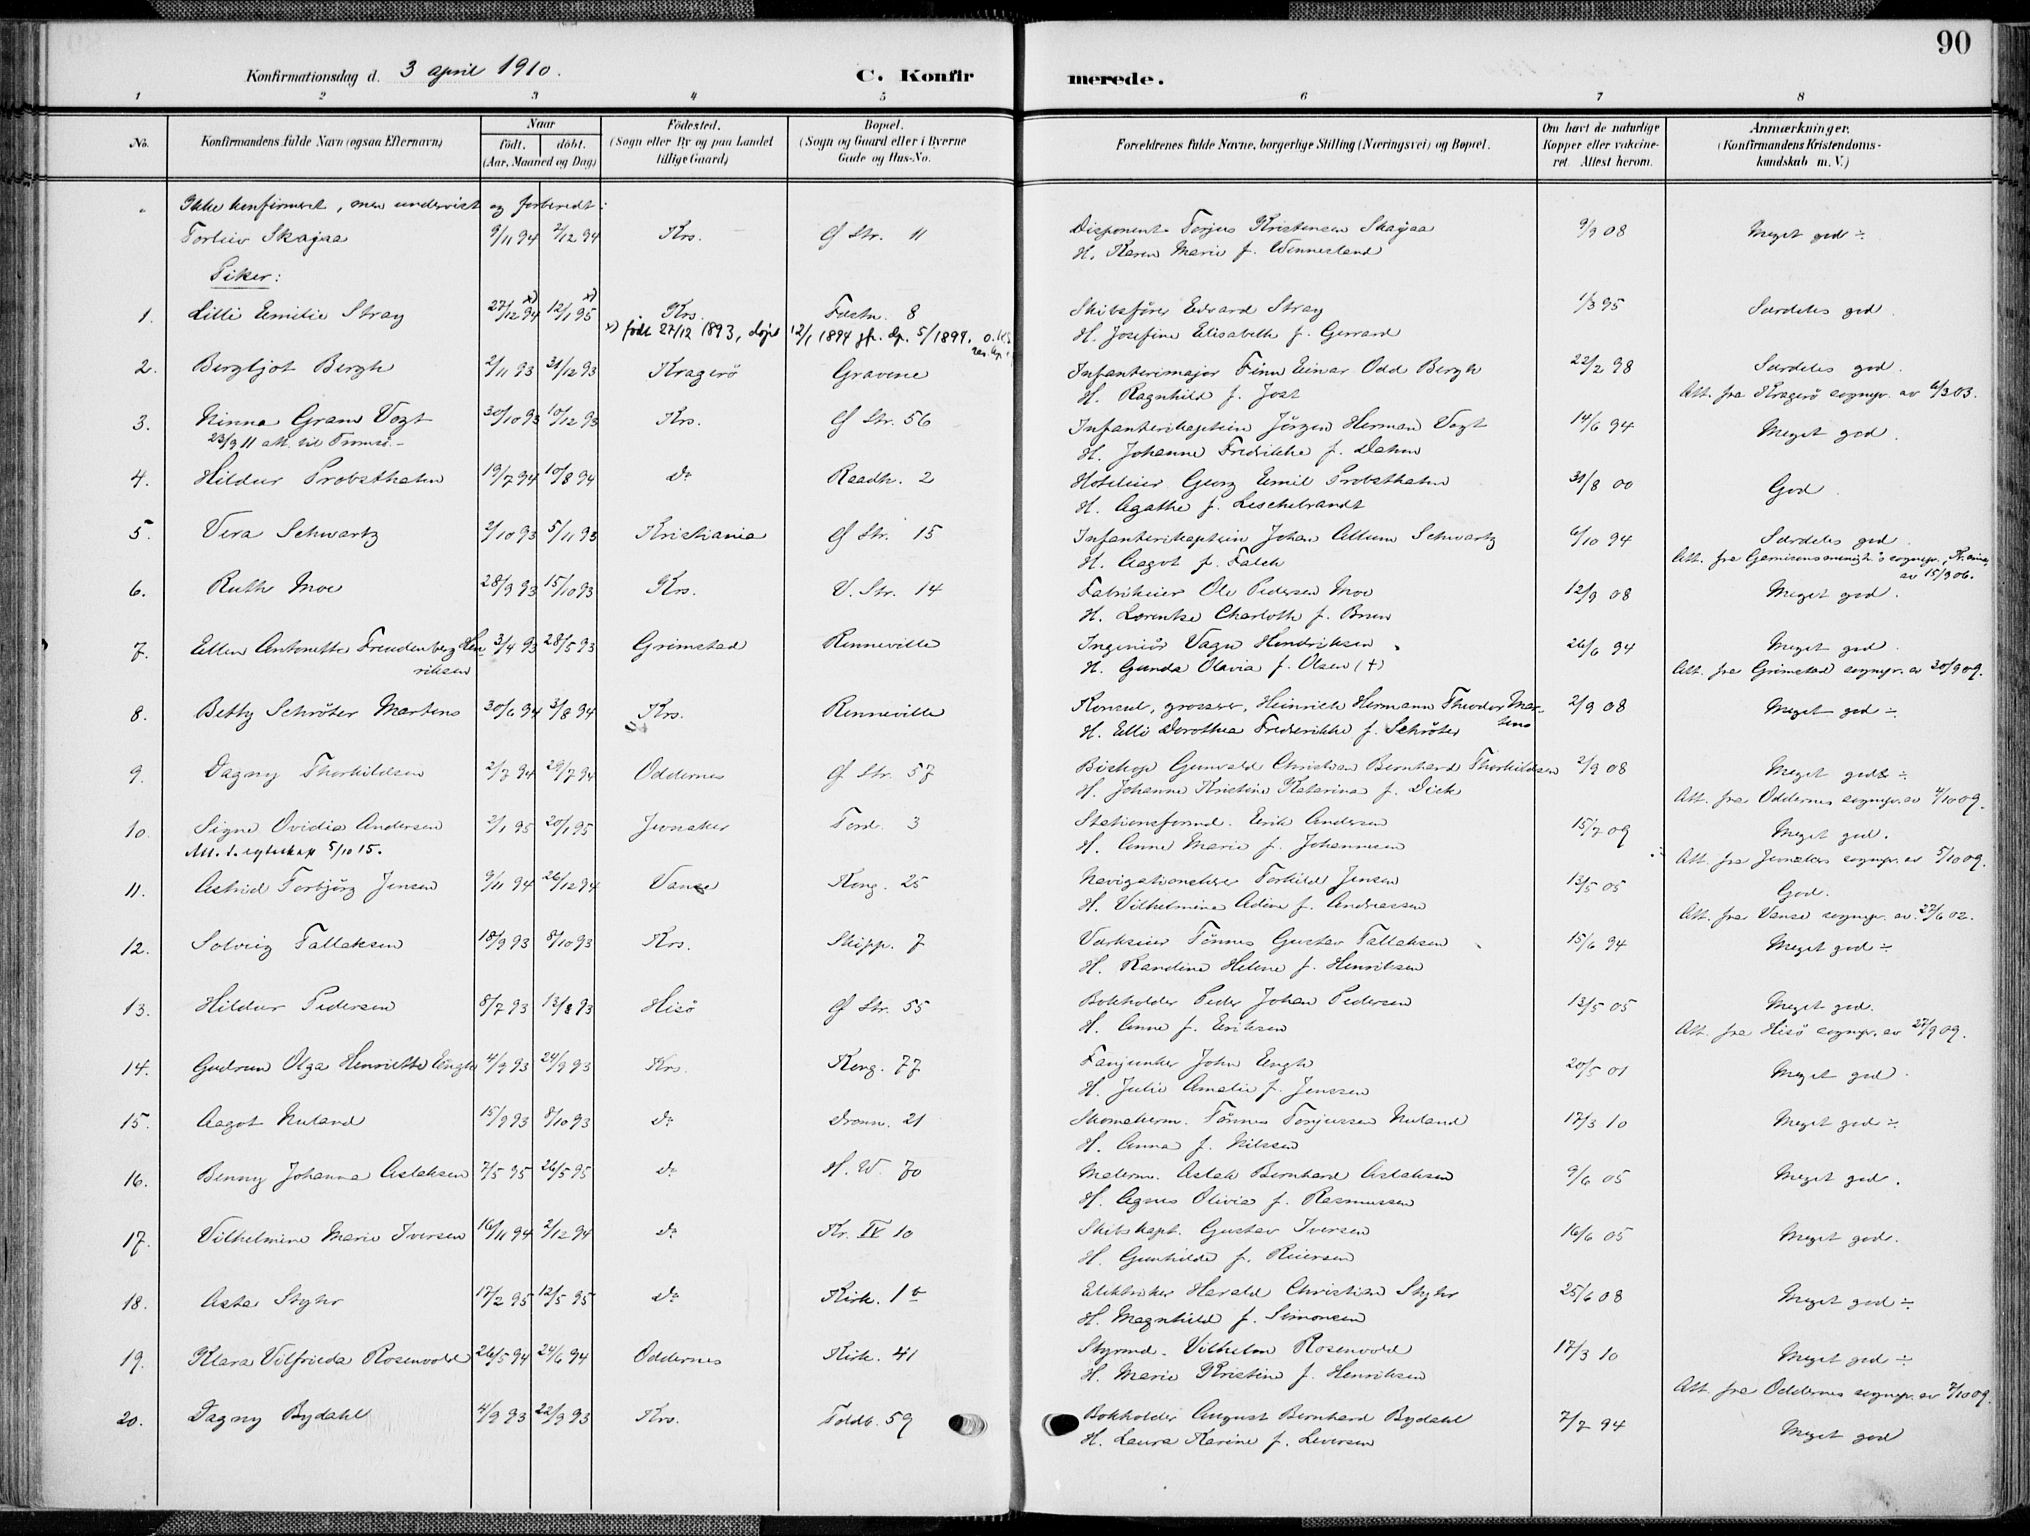 90
Konfirmationsdag d. 3 april 1910. C. Konfirmerede.
1 2 3 4 5 6 7 8
No. Konfirmandens fulde Navn (ogsaa Efternavn) Naar født. døbt. (Aar, Maaned og Dag) Fødested. (Sogn eller By og paa Landet tillige Gaard) Bopæl. (Sogn og Gaard eller i Byerne Gade og Hus-No. Forældrenes fulde Navne, borgerlige Stilling (Næringsvei) og Bopæl. Om havt de naturlige Kopper eller vakcineret. Attest herom. Anmærkninger. (Konfirmandens Kristendomskundskab m. V.)
Ikke konfirmeret, men undervist og forberedt:
Torleiv Skajaa 9/11 94 2/12 94 Krs. Ø Str. 11 Disponent Torjus Kristensen Skajaa 9/9 08 Meget god ÷
H. Karen Marie f. Wennesland
Piker:
1. Lilli Emilie Stray 27/12 94 x) 12/1 95 x) Krs. Festn. 8 Skibsfører Edvard Stray 1/3 95 Særdeles god.
x) født 27/12 1893, døpt 12/1 1894 jfr. dp. 5/1894. H. Josefine Elisabeth f. Gerrard
2. Bergljot Bergh 2/11 93 31/12 93 Kragerö Gravene Infanterimajor Finn Einar Odd Bergh 22/2 98 Særdeles god.
H. Ragnhild f. Jost Att. fra Kragerö sogmpr. av 6/3 03.
3. Ninna Gram Vogt 30/10 93 10/12 93 Krs. Ø Str. 56 Infanterikaptein Jörgen Herman Vogt 14/6 94 Meget god.
23/9 11 att. til Tromsö.- H. Johanne Fredrikke f. Dahm
4. Hildur Probsthahn 19/7 94 10/8 94 do Raadh. 2 Hoteleier Georg Emil Probsthahn 31/8 00 God.
H. Agathe f. Leschebrandt
5. Vera Schwartz 2/10 93 5/11 93 Kristiania Ø Str. 15 Infanterikaptein Johan Allum Schwartz 6/10 94 Særdeles god.
H. Aagot f. Falch Att. fra Garnisonsmenigh.s sogmpr., Kr.ania, av 15/9 06.
6. Ruth Moe 28/9 93 15/10 93 Krs. V. Str. 14 Fabrikeier Ole Pedersen Moe 12/9 08 Meget god.
H. Lorentze Charloth f. Bruun
7. Ellen Antonette Freudenberg Henriksen 3/4 93 28/5 93 Grimstad Renneville Ingeniör Vagn Hendriksen 26/6 94 Meget god.
H. Gunda Olavia f. Olsen (+) Att. fra Grimstad sogmpr. av 30/9 09.
8. Betty Schröter Martens 30/6 94 3/8 94 Krs. Renneville Konsul, grosser. Heinrich Hermann Theodor Martens 2/9 08 Meget god ÷
H. Elli Dorothea Frederikke f. Schröter
9. Dagny Thorkildsen 2/7 94 29/7 94 Oddernes Ø Str. 57 Biskop Gunvald Christian Bernhard Thorkildsen 2/9 08 Meget god ÷
H. Johanne Kristine Katarina f. Dick Att. fra Oddernes sogmpr. av 4/10 09.
10. Signe Ovidia Andersen 2/1 95 20/1 95 Jevnaker Tord. 3 Stationsformd. Erik Andersen 15/7 09 Meget god.
Att. t. egteskap 5/10 15. H. Anne Marie f. Johannesen Att. fra Jevnaker sogmpr. av 5/10 09.
11. Astrid Torbjörg Jensen 9/11 94 26/12 94 Vanse Kong. 25 Navigationslærer Torkild Jensen 13/5 05 God.
H. Vilhelmine Adine f. Andreassen Att. fra Vanse sogmpr. av 27/6 02.
12. Solveig Tallaksen 18/9 93 8/10 93 Krs. Skipp. 7 Værkseier Tönnes Gustav Tallaksen 15/6 94 Meget god ÷
H. Randine Helene f. Henriksen
13. Hildur Pedersen 8/7 93 13/8 93 Hisö Ø Str. 55 Bokholder Peder Johan Pedersen 13/5 05 Meget god.
H. Anne f. Eriksen Att. fra Hisö sogmpr. av 27/9 09.
14. Gudrun Olga Henriette Engh 4/9 93 24/9 93 Krs. Kong. 77 Fanjunker John Engh 20/5 01 Meget god.
H. Julie Amalie f. Jenssen
15. Aagot Nuland 15/9 93 8/10 93 do Dronn. 21 Skomakerm. Tönnes Torjussen Nuland 17/3 10 Meget god ÷
H. Anna f. Nilssen
16. Benny Johanna Aslaksen 7/5 95 26/5 95 do H. W. 70 Malerm. Aslak Bernhard Aslaksen 9/6 05 Meget god.
H. Agnes Olivia f. Rasmussen
17. Vilhelmine Marie Iversen 16/11 94 2/12 94 do Kr. IV 10 Skibskapt. Gustav Iversen 16/6 05 Meget god.
H. Gunhilde f. Reiersen
18. Asta Styhr 17/2 95 12/5 95 do Kirk. 1 b Elektriker Harald Christian Styhr 25/6 08 Meget god ÷
H. Magnhild f. Simonsen
19. Klara Vilfrieda Rosenvold 26/5 94 24/6 94 Oddernes Kirk. 41 Styrmd. Vilhelm Rosenvold 17/3 10 Meget god ÷
H. Marie Kristine f. Henriksen Att. fra Oddernes sogmpr. av 7/10 09.
20. Dagny Bydahl 4/9 93 22/9 93 Krs. Toldb. 59 Bokholder August Bernhard Bydahl 7/7 94 Meget god
H. Laura Karine f. Leversen